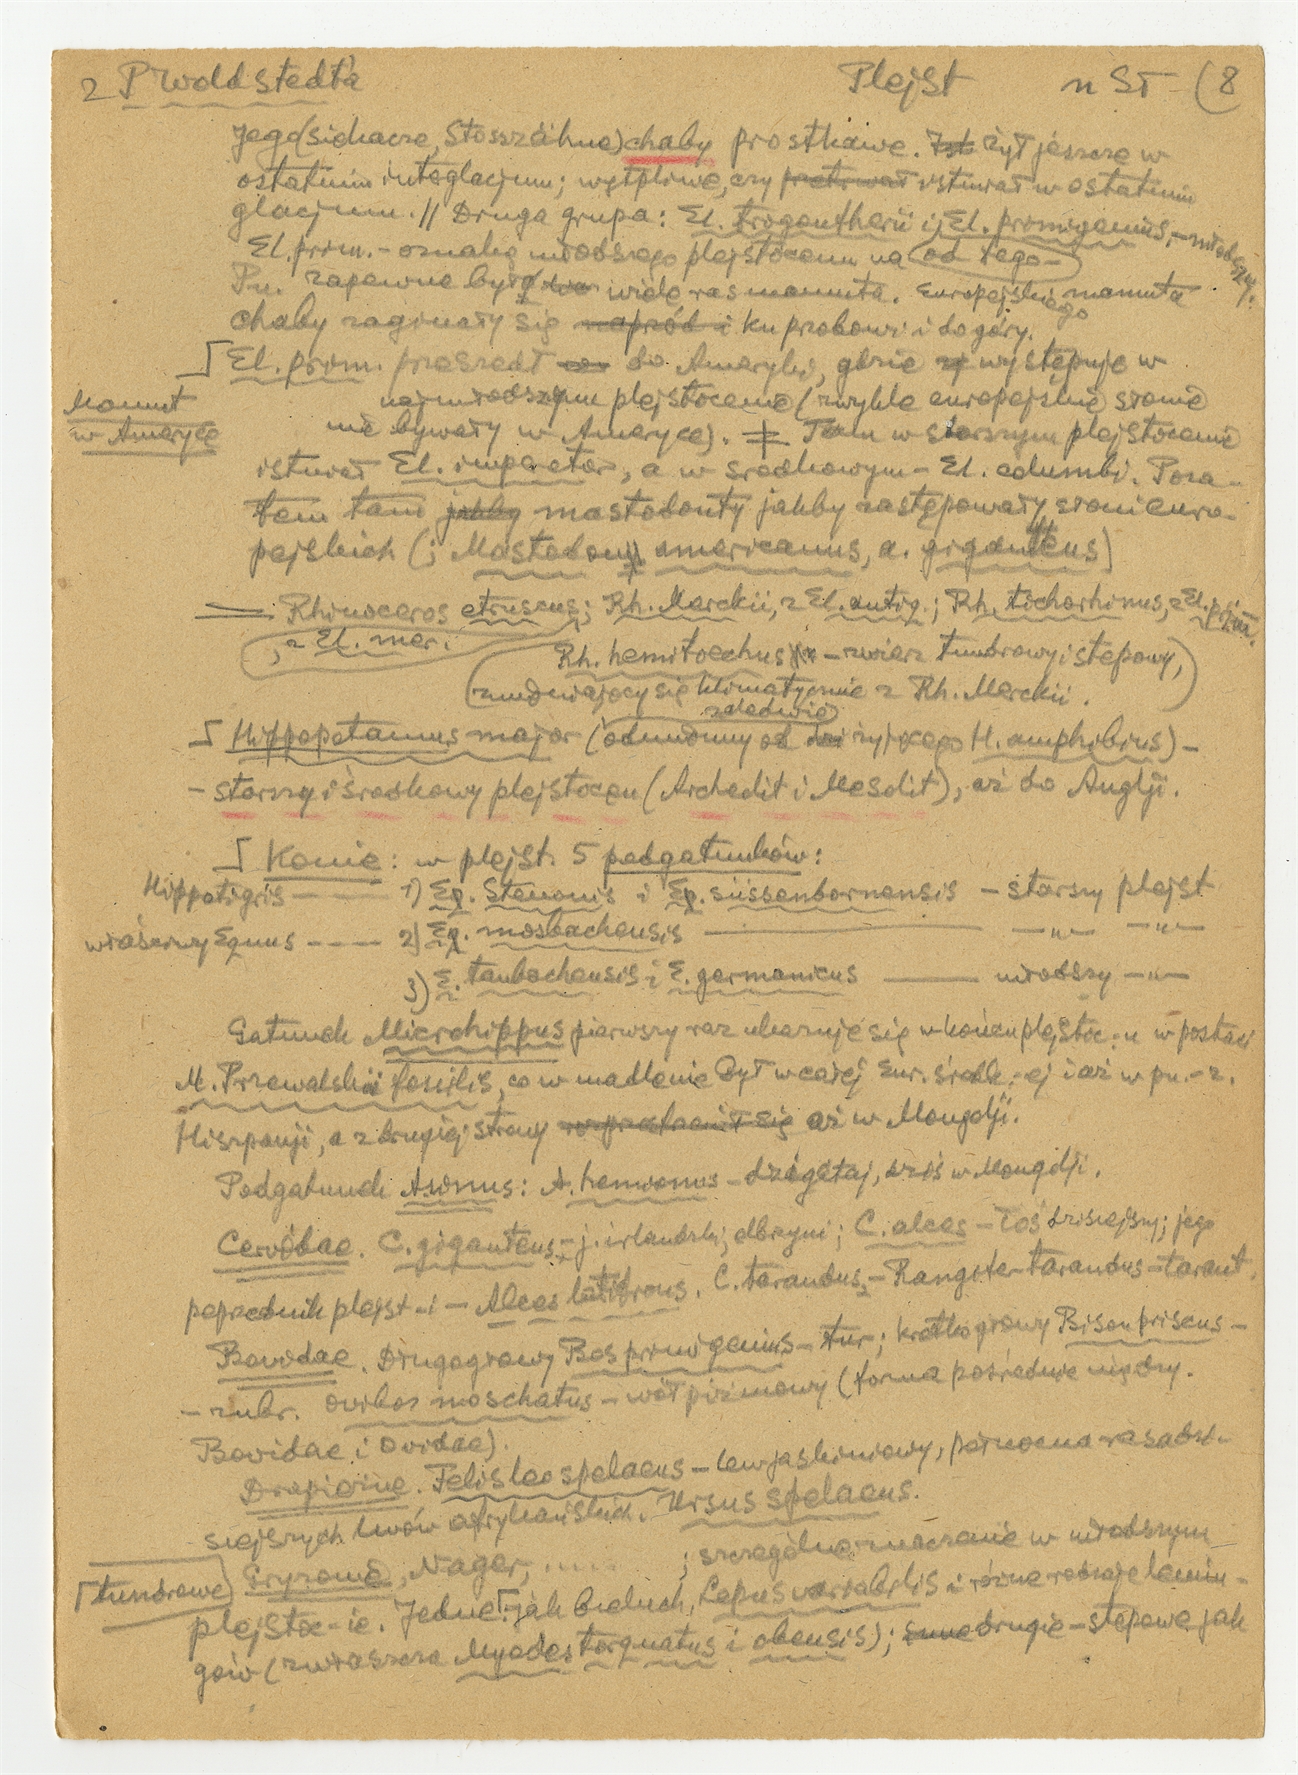 z P Woldstedt'a Plejst n ST - (8
Jego (siekacze, Stosszähne) chaby prostkawe. Żył jeszcze w
ostatnim interglacjum; wątpliwe, czy istniał w ostatnim
glacjum. // Druga grupa: El. trogontherii i El. primigenius, - młodszy.
El. prim. - oznaką młodszego plejstocenu na od tego -
Pn. zapewne było wiele ras mamuta. Europejskiego mamuta
chaby zaginały się naprzód i ku przodowi i do góry.
El. prim. przeszedł do Ameryki, gdzie występuje w
Mamut
w Ameryce
najmłodszym plejstocenie (zwykle europejskie słonie
nie bywały w Ameryce). Tam w starszym plejstocenie
istniał El. imperator, a w środkowym - El. columbi. Poza-
tem tam jakby mastodonty jakby zastępowały słoni euro-
pejskich (; Mastodon americanus, a. giganteus)
Rhinoceros etruscus; Rh. Merckii, z El. antiq.; Rh. tichorhinus, z El. prim.
, z El. mer.
Rh. hemitoechus - zwierz tundrowy i stepowy,
zmieniający się klimatycznie z Rh. Merckii.
zaledwie
Hippopotamus major (odmienny od żyjącego H. amphibius) -
- starszy i środkowy plejstocen (Archeolit i Mesolit), aż do Anglji.
Konie: w plejst. 5 podgatunków:
Hippotigris 1) Eq. Stenonis i Eq. süssenbornensis - starszy plejst
właściwy Equus ---- 2) Eq. mosbachensis —„— —„—
3) E. taubachensis i E. germanicus młodszy —„—
Gatunek Microhippus pierwszy raz ukazuje się w końcu plejstoc. u w postaci
M. Przewalskii fosilis, co w madlenie był w całej Eur. środk.-ej i aż w pn.-z.
Hiszpanji, a z drugiej strony rozprzestrzenił się aż w Mongolji.
Podgatunek Asinus: A. hemionus - dżigetaj, dziś w Mongolji.
Cervidae. C. giganteus - j. irlandzki, olbrzymi; C. alces - łoś dzisiejszy; jego
poprzednik plejst-i - Alces latifrons. C. tarandus - Rangifer tarandus - tarant.
Bovidae. Długogrowy Bos primigenius - tur; krótkogrowy Bison priscus -
- żubr. Ovibos moschatus - wół piżmowy (forma pośrednia między
Bovidae i Ovidae).
Drapieżne. Felis leo spelaeus - lew jaskiniowy, północna rasa dzi-
siejszych lwów afrykańskich. Ursus spelaeus.
Gryzonie, Nager, ..... ; szczególne znaczenie w młodszym
tundrowe
plejstoc-ie. Jedne jak bieluch, Lepus variabilis i różne rodzaje lemin-
gów (zwłaszcza Myodes torquatus i obensis); drugie - stepowe jak